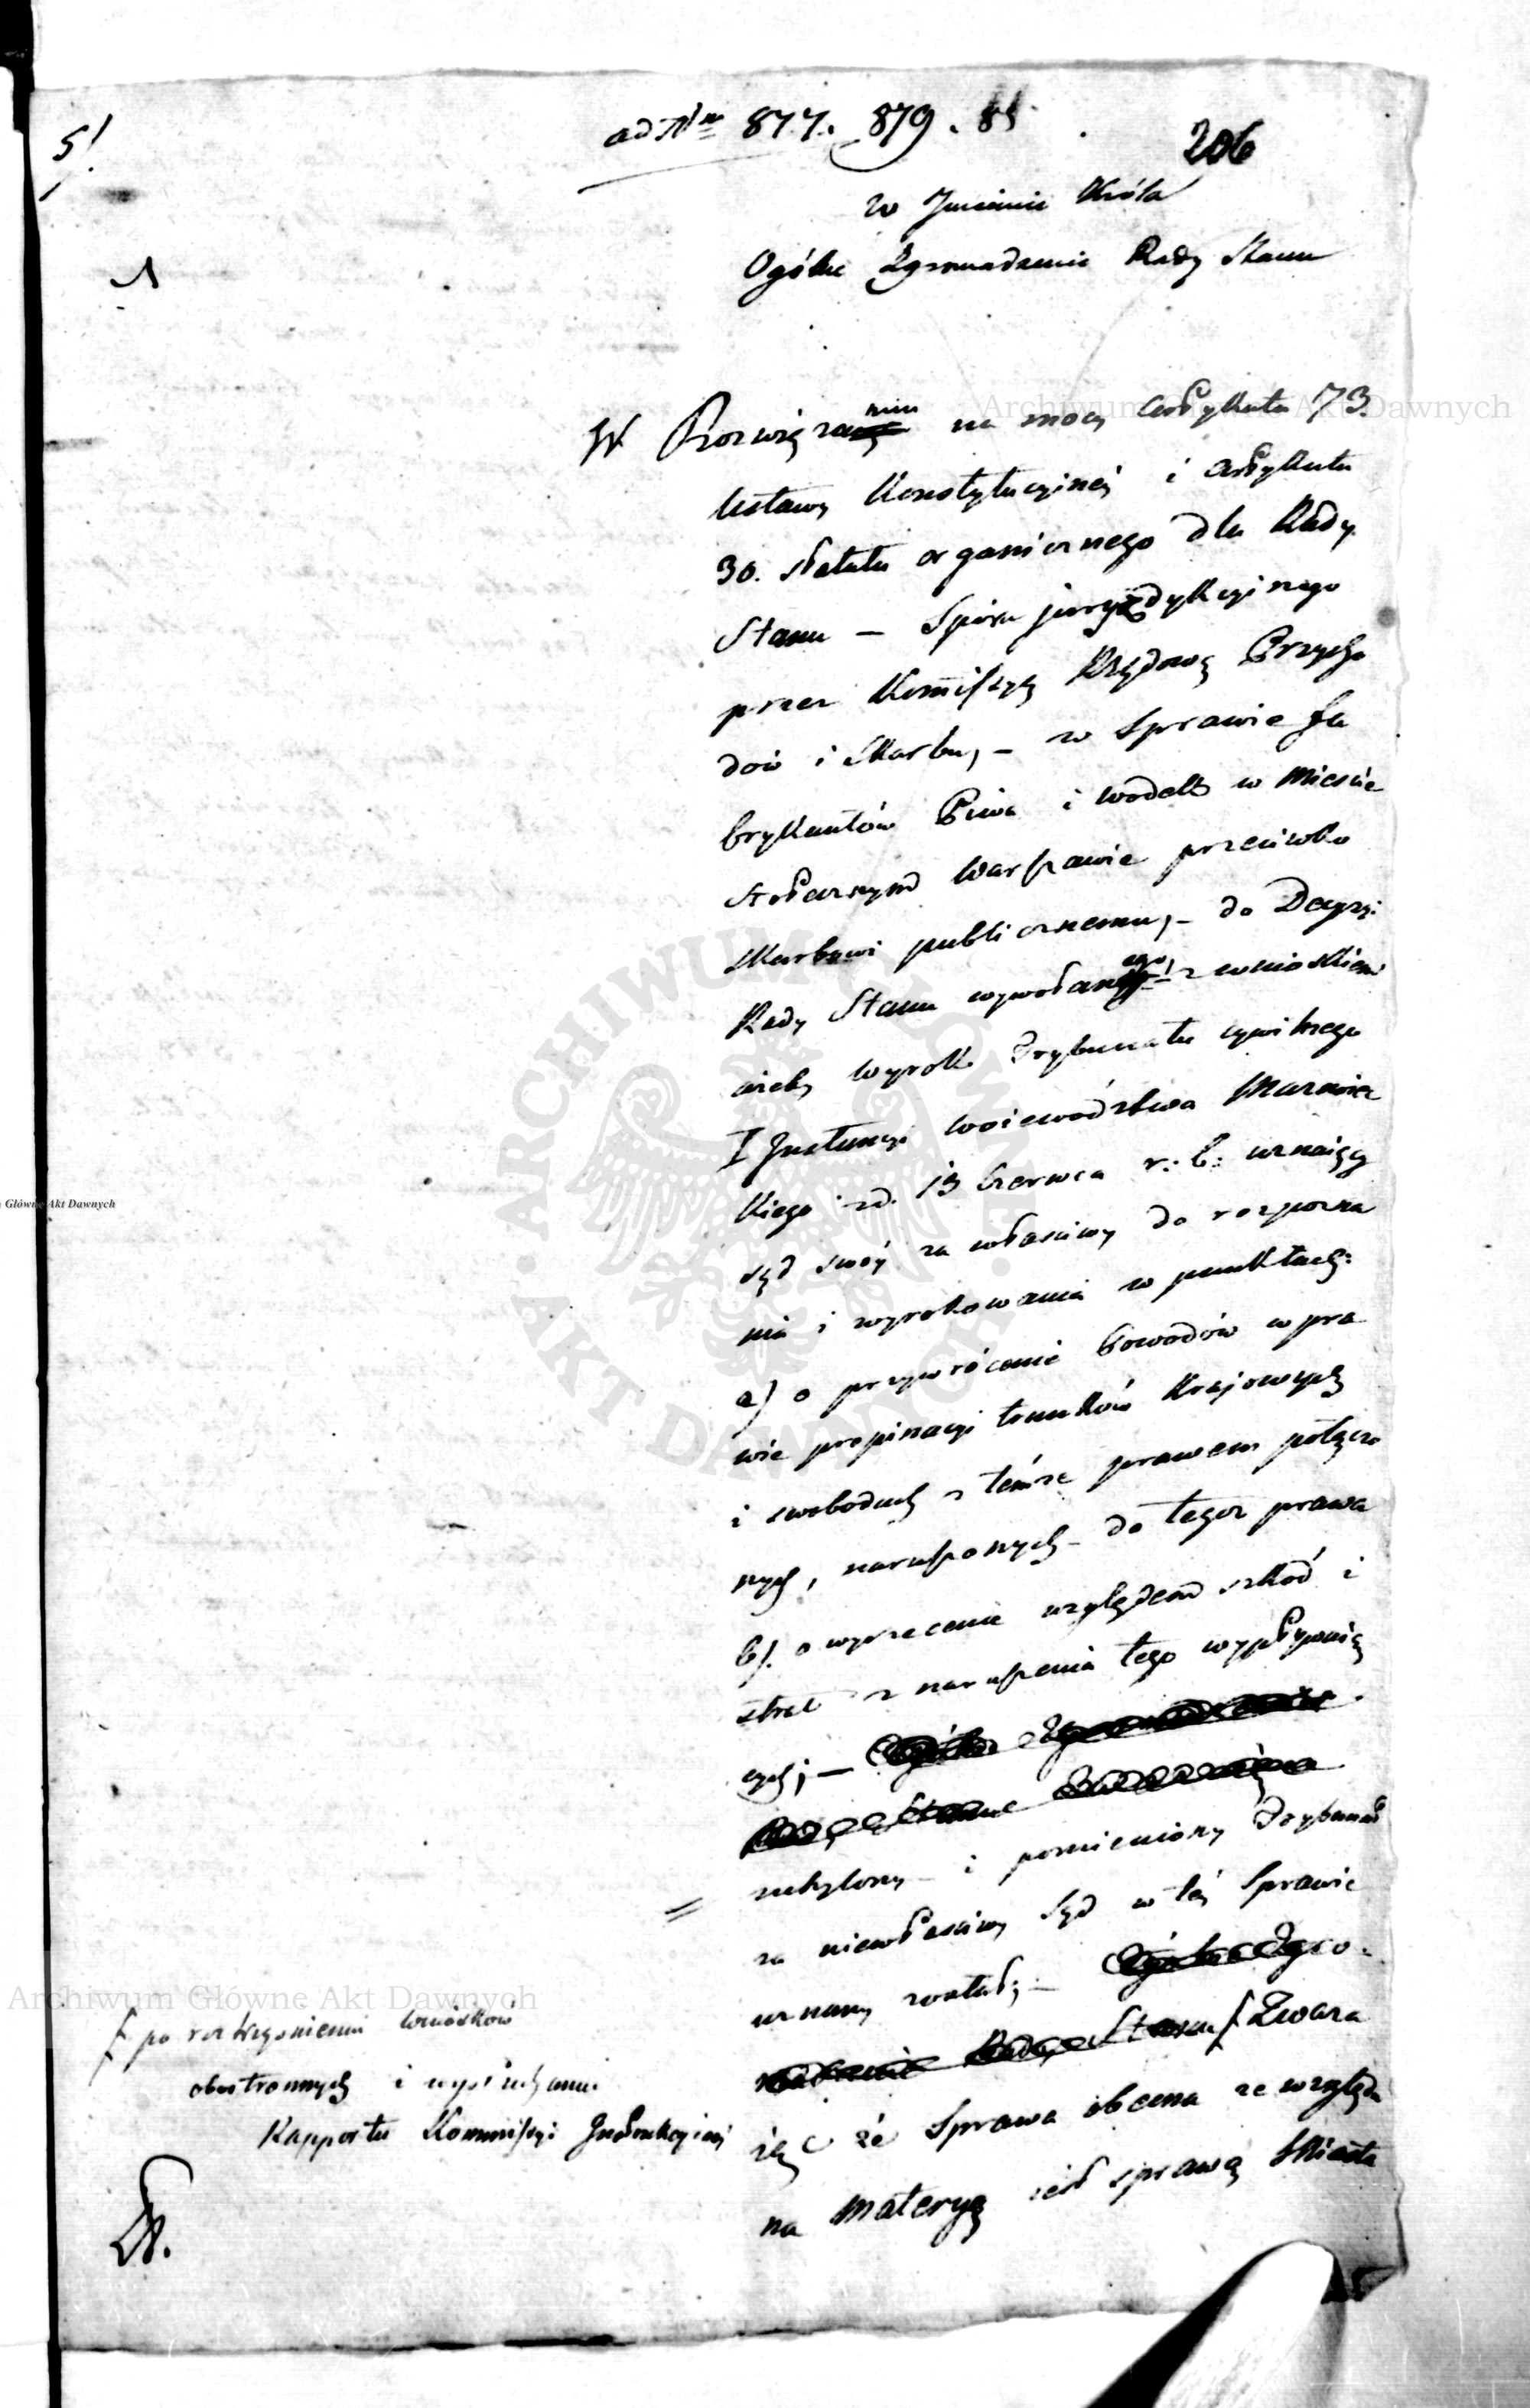 5/.
ad Nrm 877. 879. 88
206
w Jmieniu Króla
Ogólne Zgromadzenie Rady Stanu
W Rozwiązaniu na mocy artykułu 73.
Ustawy Konstytucyinéj i artykułu
30. statutu organicznego dla Rady
Stanu — Sporu juryzdykcyinego
przez Kommissyą Rządową Przycho
dów i Skarbu, — w Sprawie fa
brykantów Piwa i wódek w Mieście
Stołecznym Warszawie przeciwko
Skarbowi publicznemu, — do Decyzyi
Rady Stanu wywołanego, z wnioskiem
ażeby wyrok Trybunału cywilnego
I Jnstancyi Województwa Mazowiec
kiego z d. 13 Czerwca r: b: uznaiący
sąd swóy za właściwy do rozpozna
nia i wyrokowania w punktach:
a) o przywrócenie Powodów w pra
wie propinacyi trunków Krajowych
i swobodach z témże prawem połączo
nych, naruszonych — do tegoż prawa
b). o wyrzeczenie względem szkód i
strat z naruszenia tego wypływaią
cych; — Ogólne Zgromadzenie
Rady Stanu
uchylony — i pomieniony Trybunał
za niewłaściwy Sąd w téj Sprawie
uznany został; — Ogólne Zgro-
madzenie Rady Stanu ƒ Zważa
iąc że Sprawa obecna ze względu
na Materyą iest sprawą Miasta
ƒ po roztrząśnieniu wniosków
obustronnych i wysłuchaniu
Rapportu Kommissyi Jnstrukcyinéj
Archiwum Główne Akt Dawnych
Główne Akt Dawnych
ARCHIWUM GŁÓWNE · AKT DAWNYCH ·
Archiwum Główne Akt Dawnych